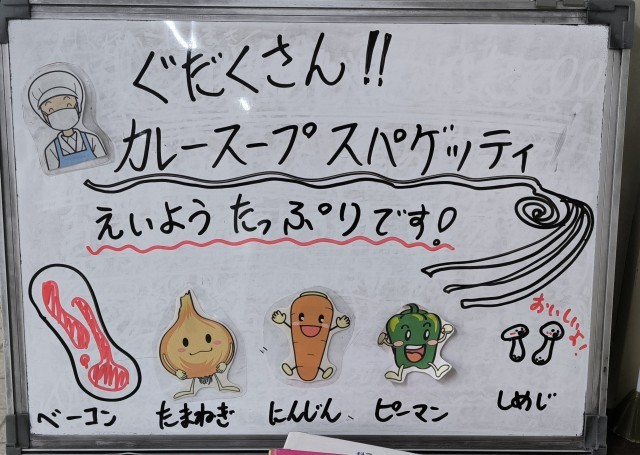 ぐだくさん!!
カレースープスパゲッティ
えいようたっぷりです!
おいしいよ!
ベーコン
たまねぎ
にんじん、
ピーマン
しめじ